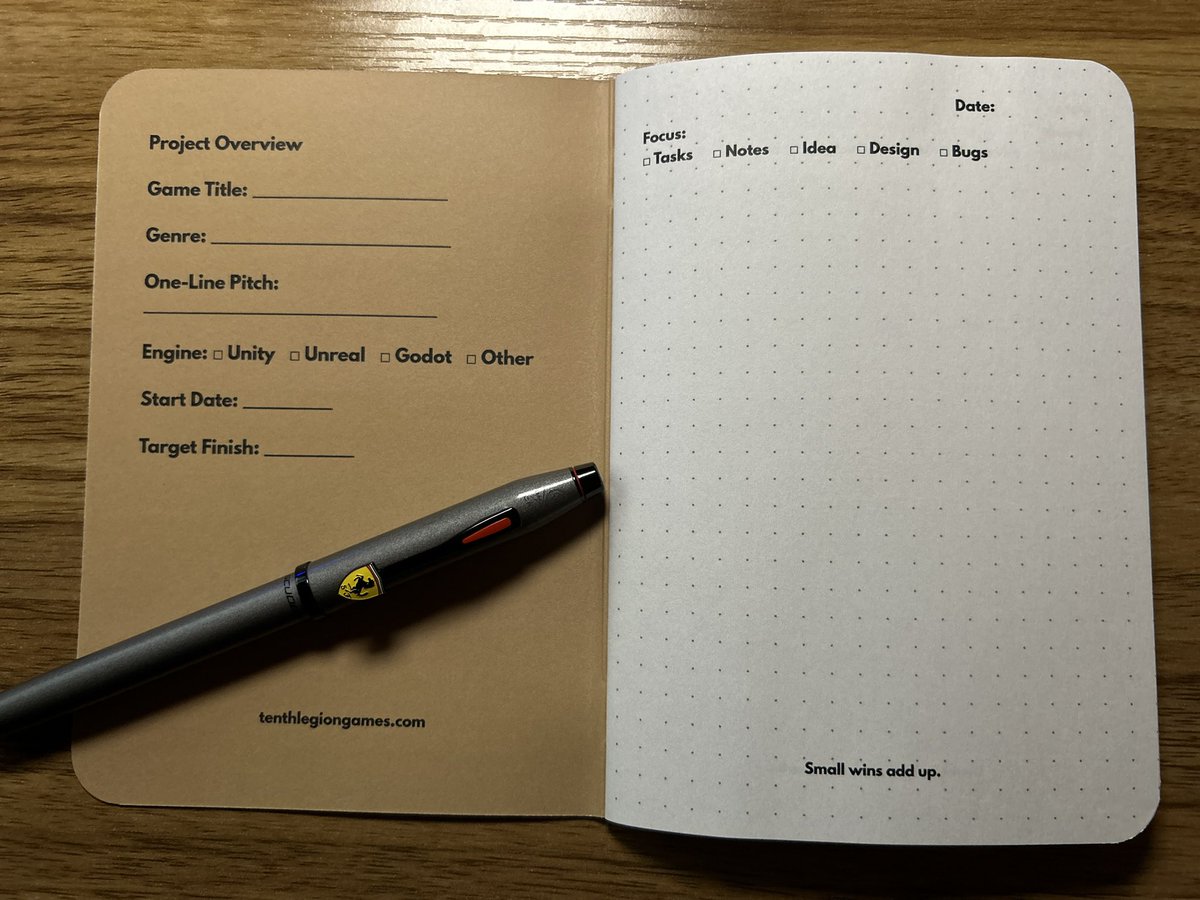 Project Overview
Game Title:
Genre:
One-Line Pitch:
Engine: □ Unity □ Unreal □ Godot □ Other
Start Date:
Target Finish:
tenthlegiongames.com
Date:
Focus:
□ Tasks □ Notes □ Idea □ Design □ Bugs
Small wins add up.